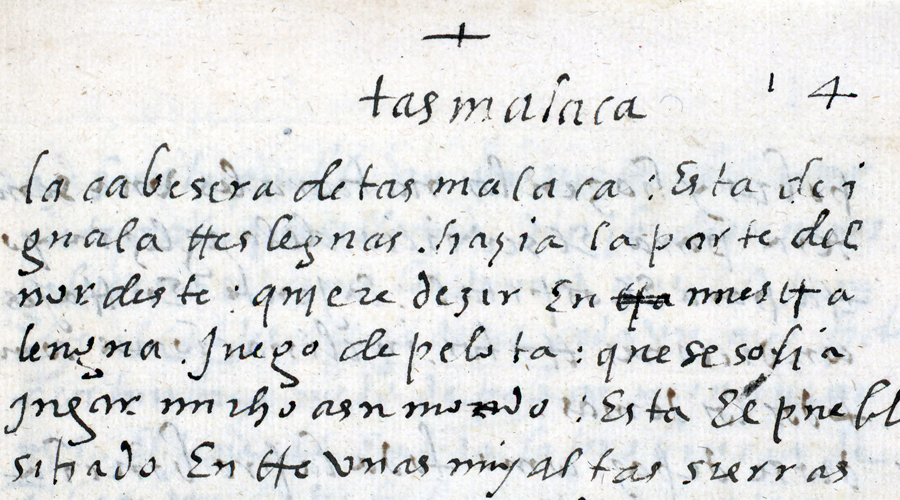 +
tasmalaca 14
la cabesera de tasmalaca : Esta de i
guala ttes leguas . hazia la parte del
nordeste : quiere dezir En nuestta
lengua . Juego de pelota : que se solia
Jugar mucho a su modo : Esta El puebl
sitiado En tte unas muy altas sierras